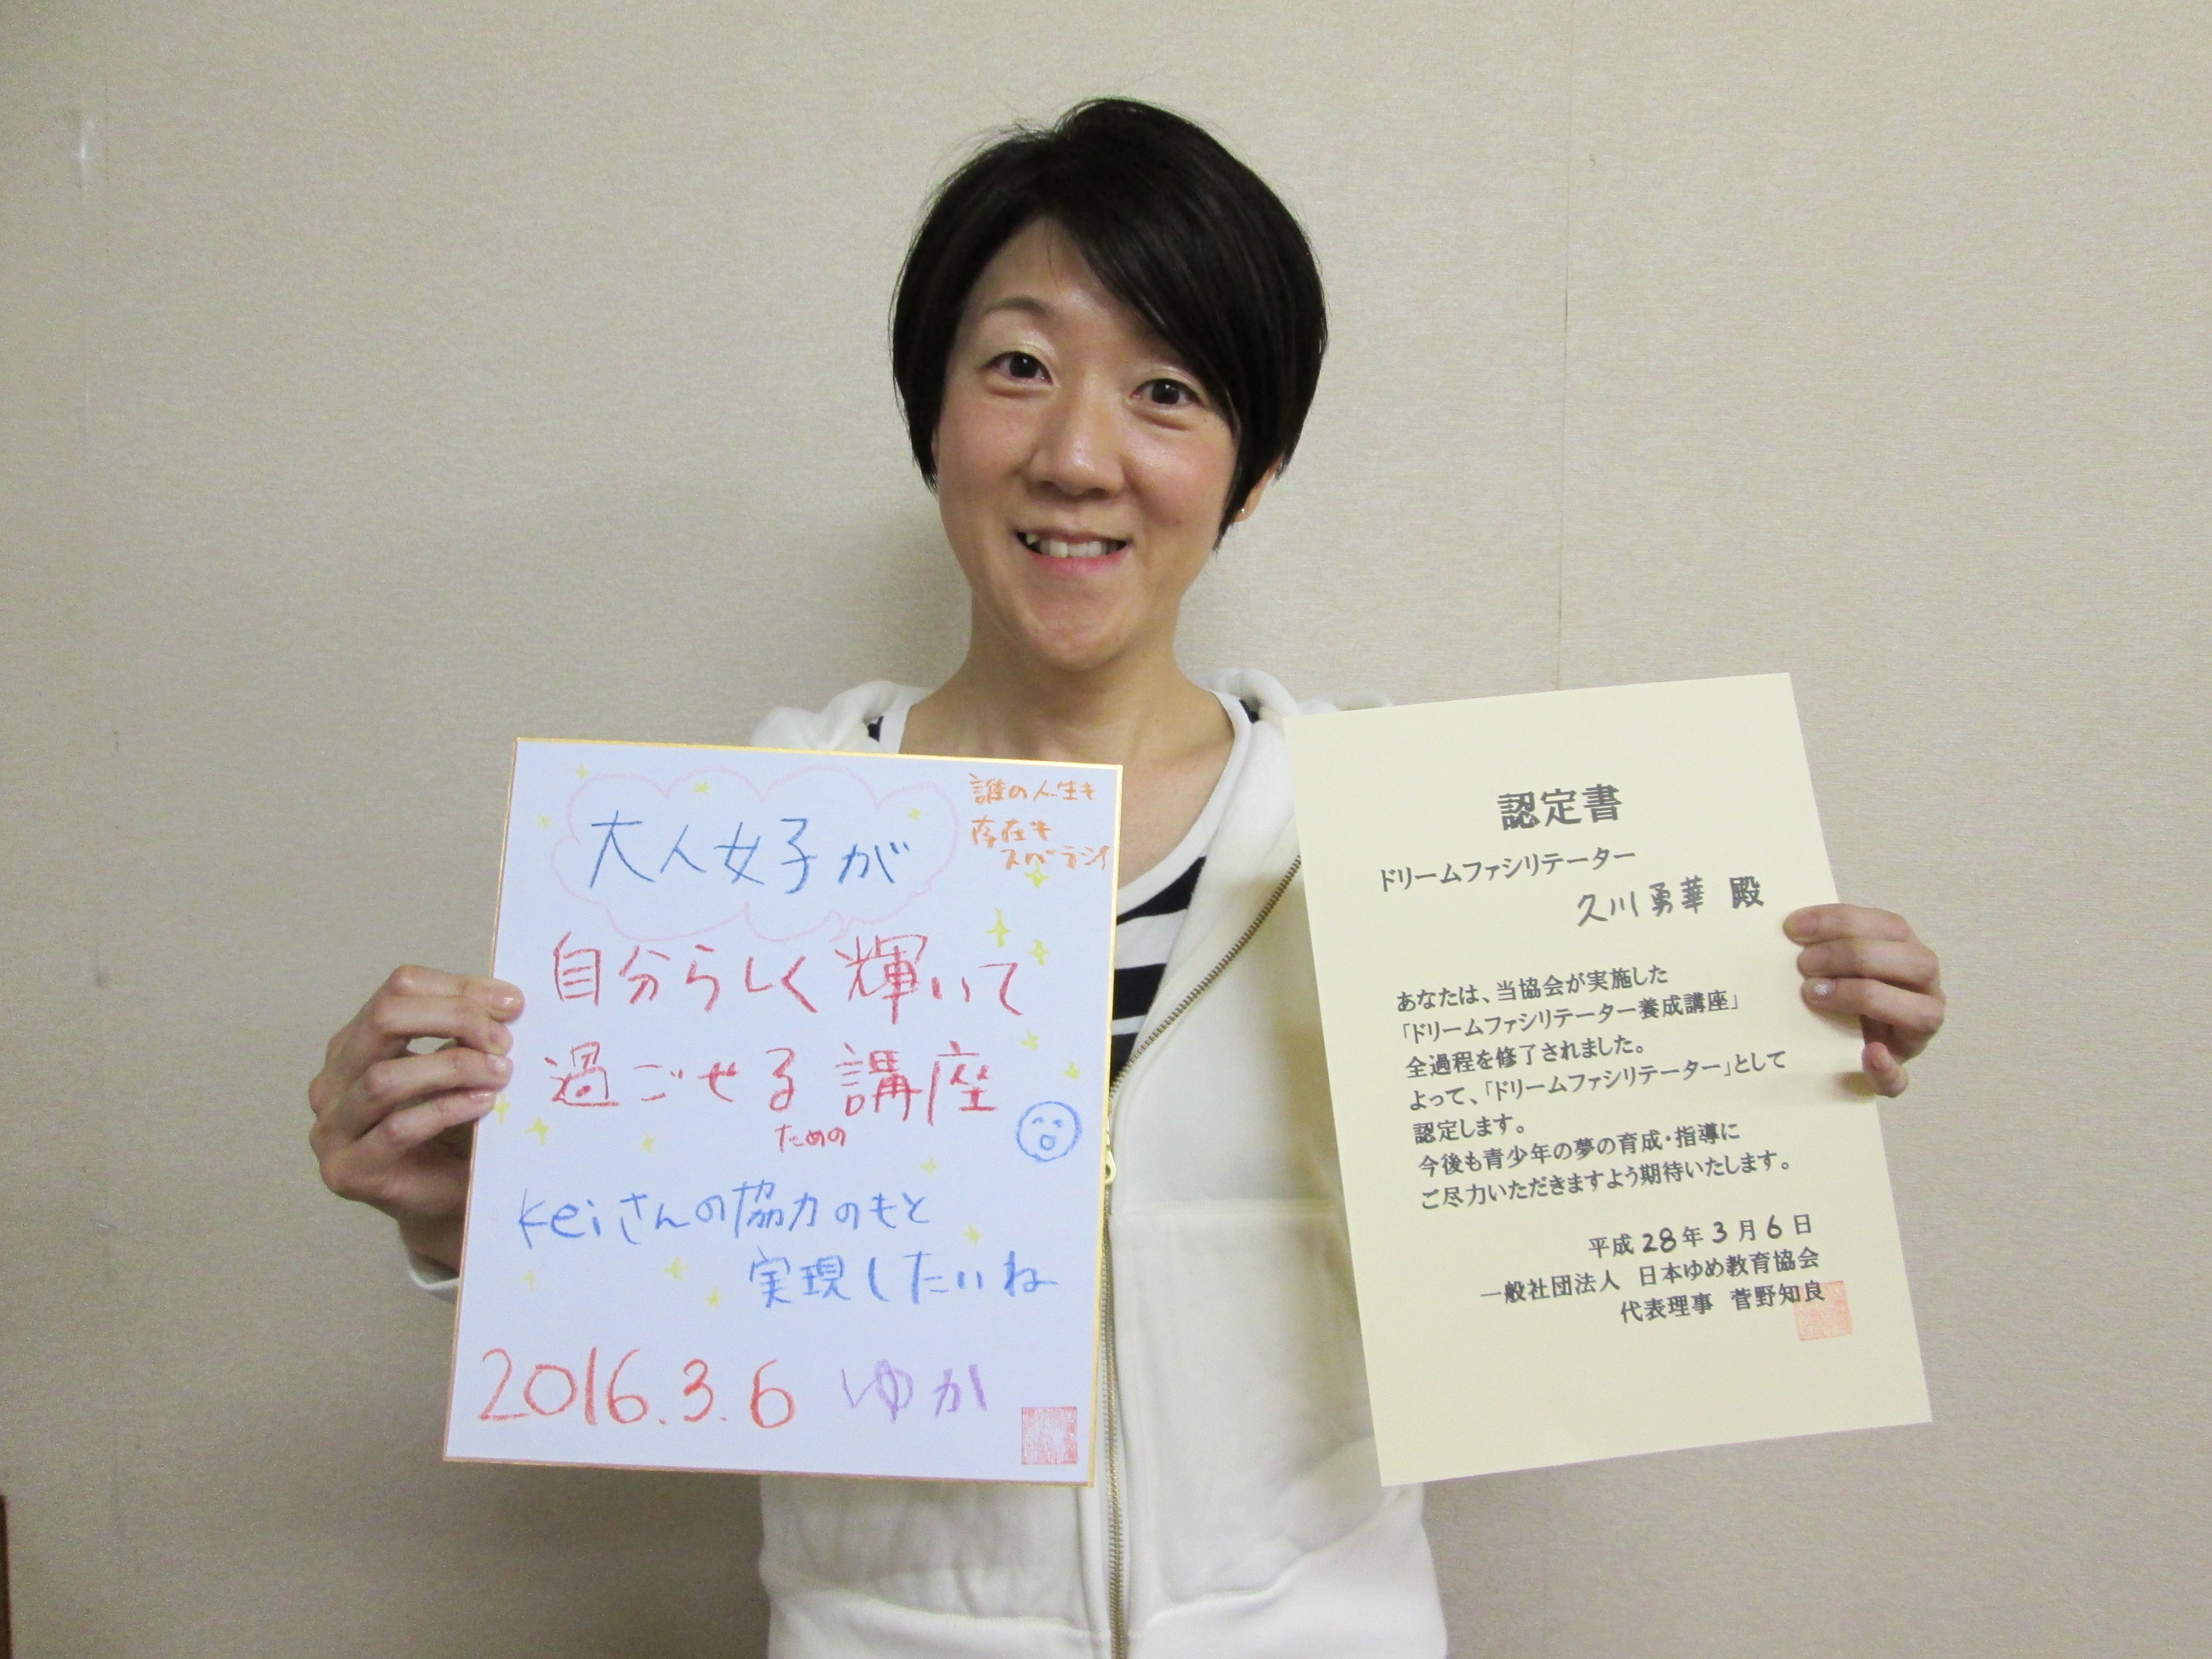 大人女子が
誰の人生も
存在も
スバラシイ
自分らしく輝いて
過ごせる講座
ための
keiさんの協力のもと
実現したいね
2016.3.6 ゆか
認定書
ドリームファシリテーター
久川勇華 殿
あなたは、当協会が実施した
「ドリームファシリテーター養成講座」
全過程を修了されました。
よって、「ドリームファシリテーター」として
認定します。
今後も青少年の夢の育成・指導に
ご尽力いただきますよう期待いたします。
平成28年3月6日
一般社団法人 日本ゆめ教育協会
代表理事 菅野知良